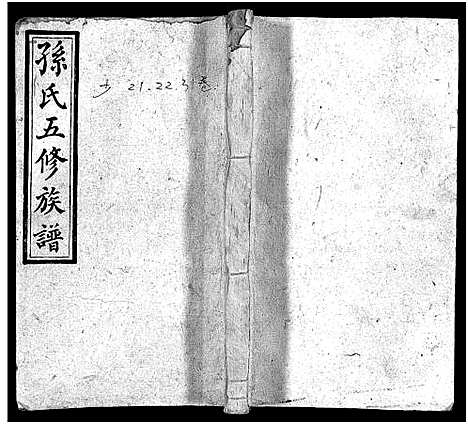 孫氏五修族譜
少 21.22.31卷